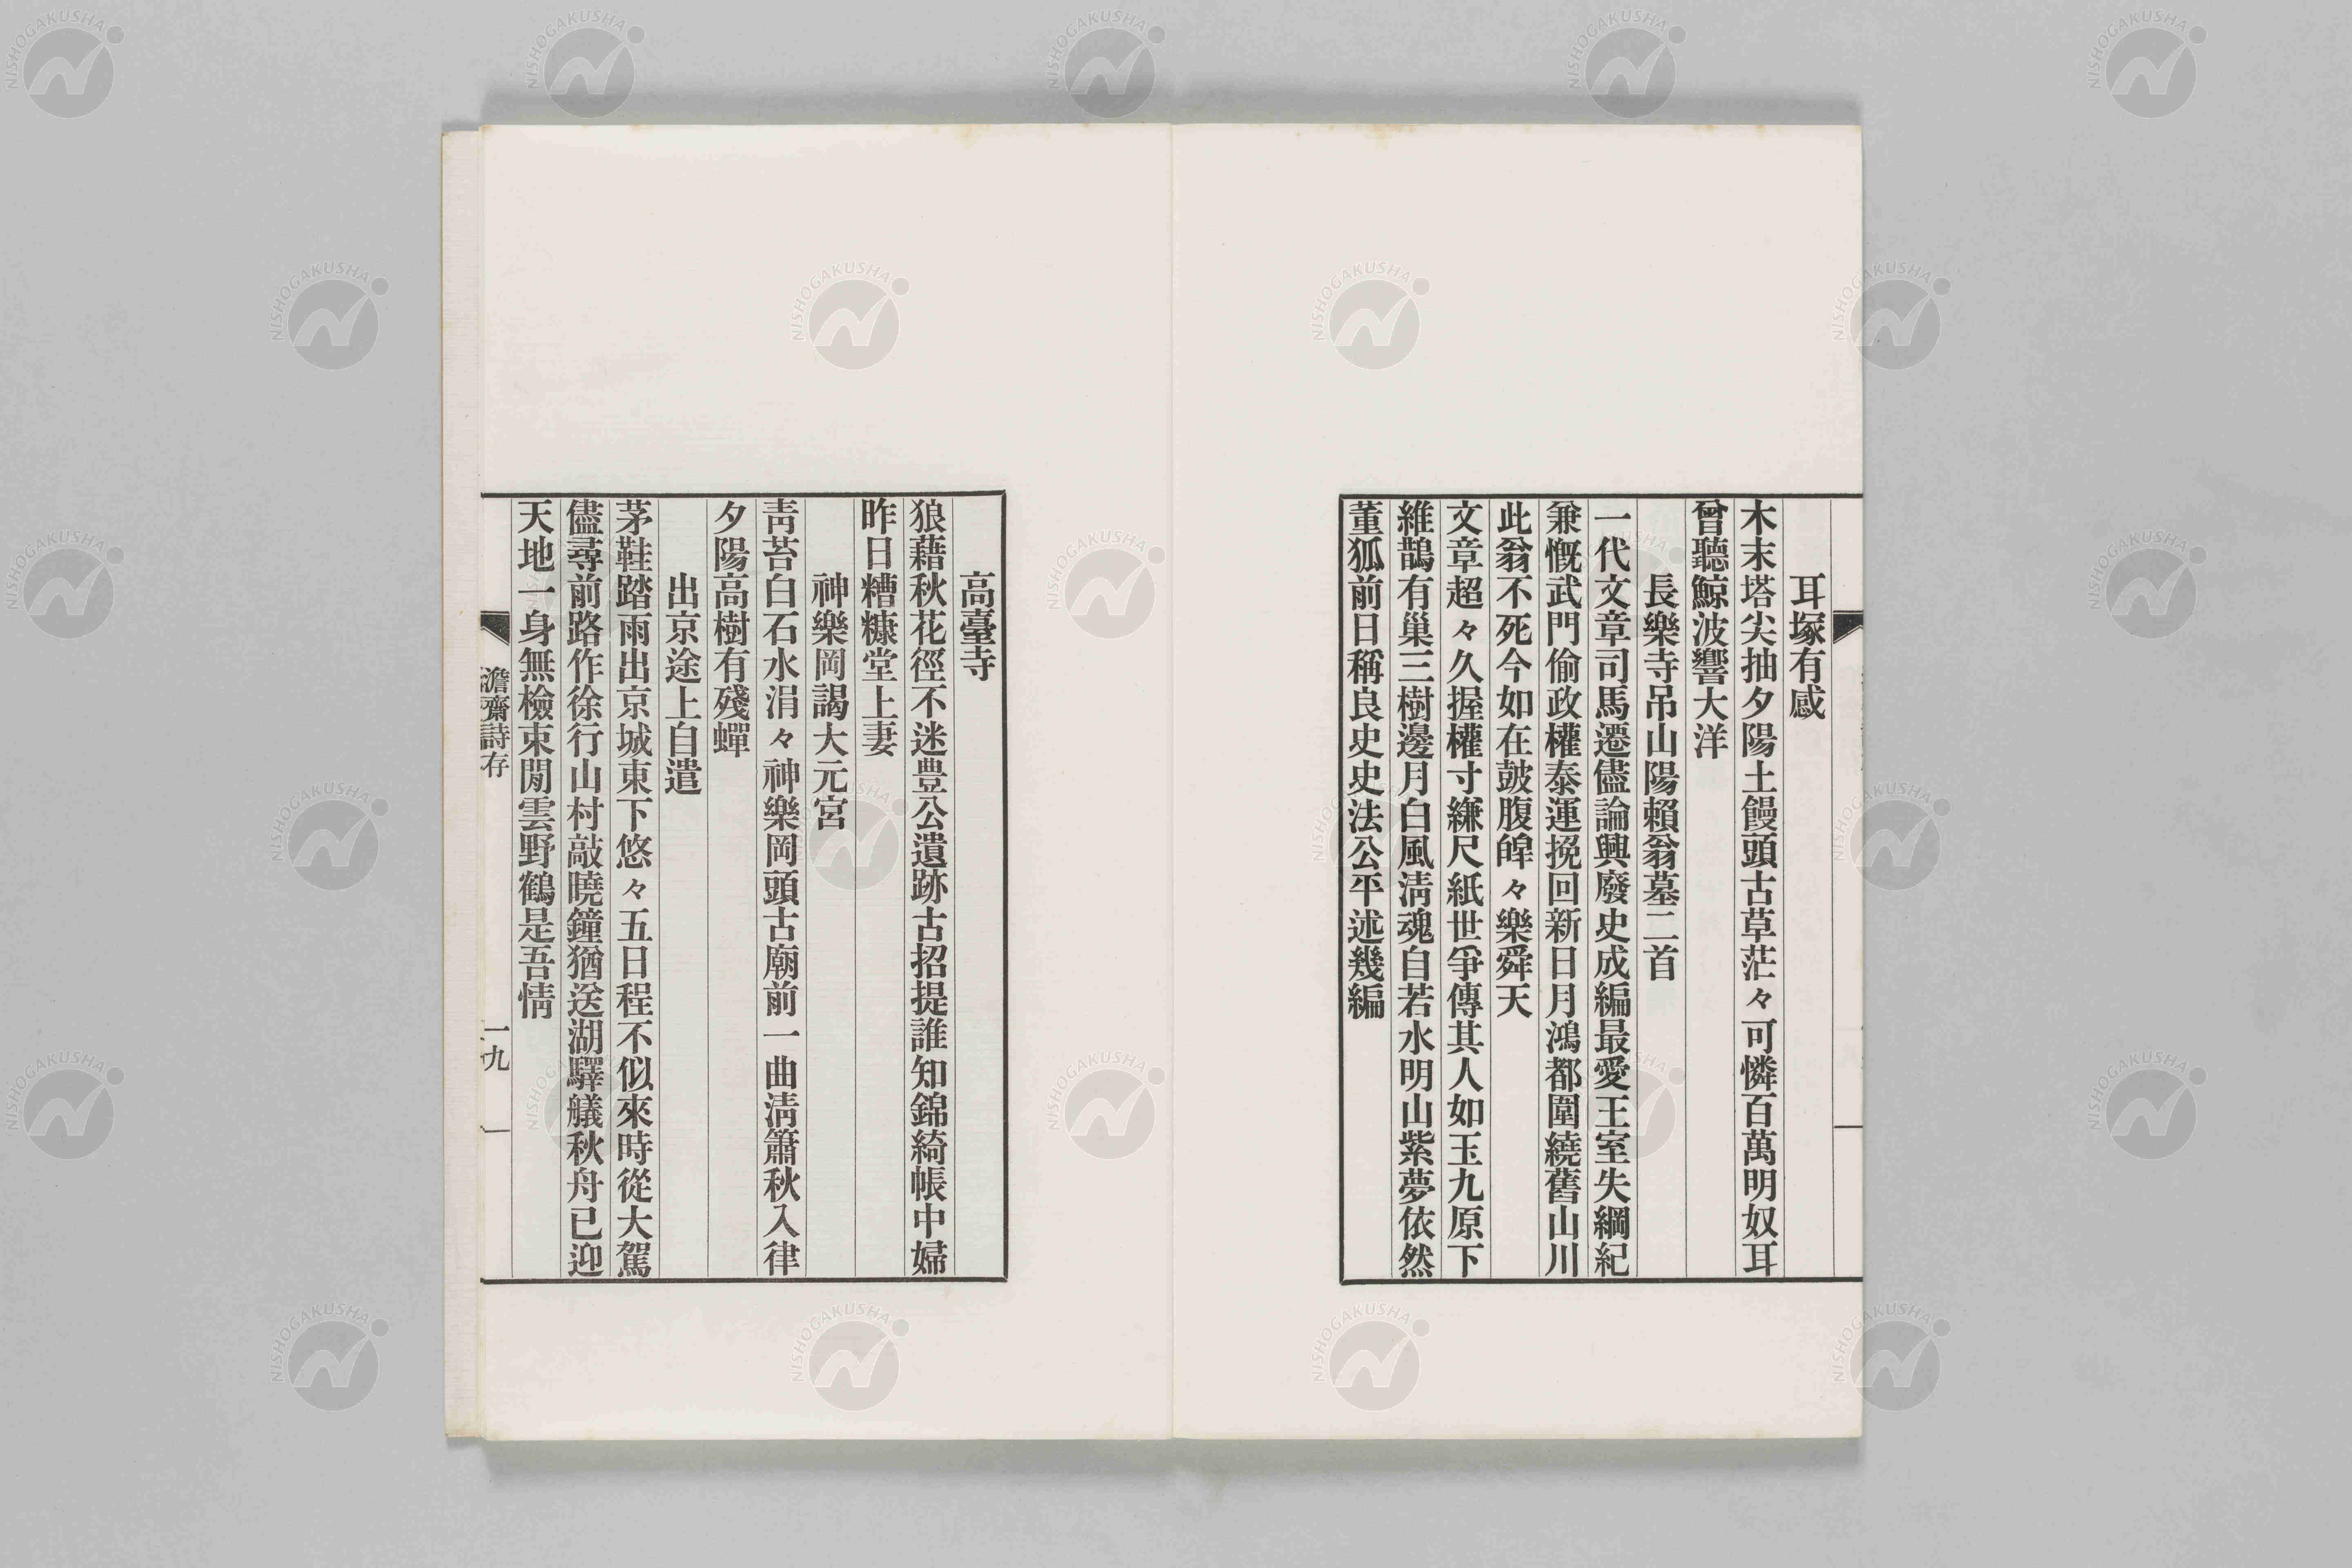 耳塚有感
木末塔尖抽夕陽土饅頭古草茫々可憐百萬明奴耳
曾聽鯨波響大洋
長樂寺吊山陽賴翁墓二首
一代文章司馬遷儘論興廢史成編最愛王室失綱紀
兼慨武門偷政權泰運挽回新日月鴻都圍繞舊山川
此翁不死今如在皷腹皥々樂舜天
文章超々久握權寸縑尺紙世爭傳其人如玉九原下
維鵲有巢三樹邊月白風淸魂自若水明山紫夢依然
董狐前日稱良史史法公平述幾編
高臺寺
狼藉秋花徑不迷豊公遺跡古招提誰知錦綺帳中婦
昨日糟糠堂上妻
神樂岡謁大元宮
靑苔白石水涓々神樂岡頭古廟前一曲淸簫秋入律
夕陽高樹有殘蟬
出京途上自遣
茅鞋踏雨出京城東下悠々五日程不似來時從大駕
儘尋前路作徐行山村敲曉鐘猶送湖驛艤秋舟已迎
天地一身無檢束閒雲野鶴是吾情
澹齋詩存
一九
NISHOGAKUSHA